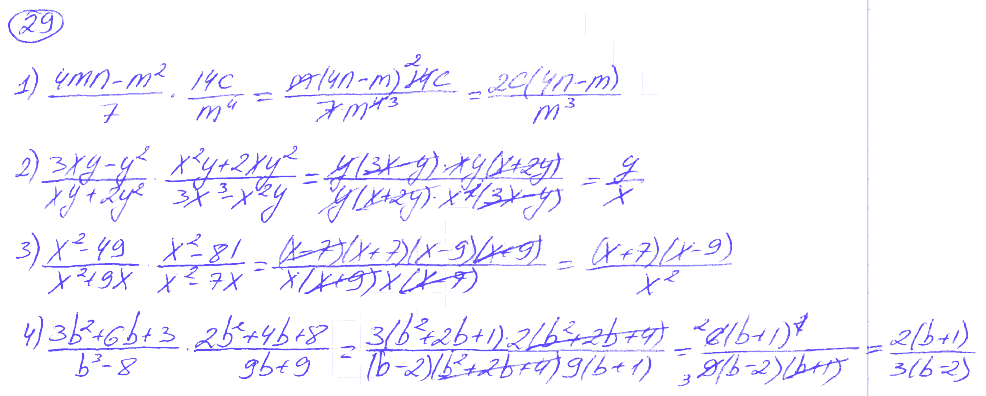 29
1) (4mn-m²)/7 · 14c/m⁴ = (m(4n-m)²14c)/(7m⁴³) = 2c(4n-m)/m³
2) (3xy-y²)/(xy+2y²) · (x²y+2xy²)/(3x³-x²y) = (y(3x-y)·xy(x+2y))/(y(x+2y)·x²(3x-y)) = y/x
3) (x²-49)/(x²+9x) · (x²-81)/(x²-7x) = ((x-7)(x+7)(x-9)(x+9))/(x(x+9)x(x-7)) = ((x+7)(x-9))/x²
4) (3b²+6b+3)/(b³-8) · (2b²+4b+8)/(9b+9) = (3(b²+2b+1)·2(b²+2b+4))/((b-2)(b²+2b+4)9(b+1)) = (²6(b+1)²)/(₃9(b-2)(b+1)) = 2(b+1)/3(b-2)